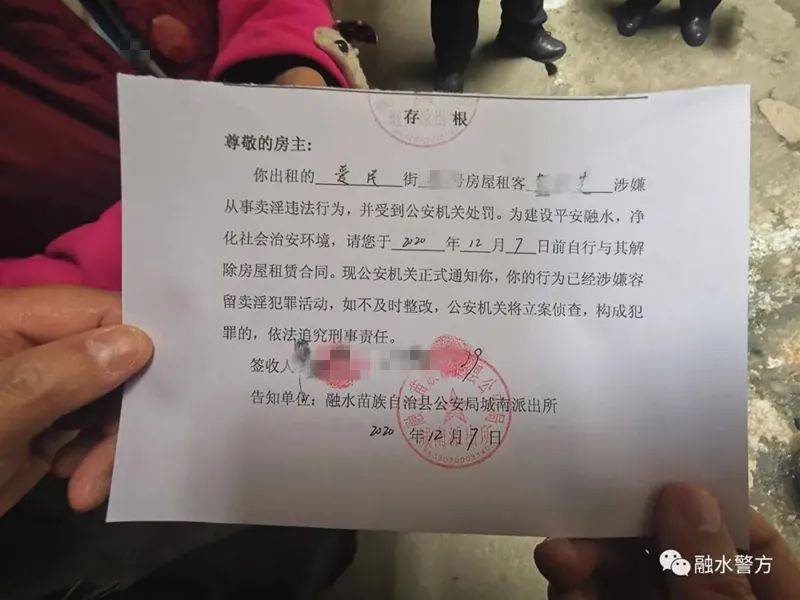 存 根
尊敬的房主：
你出租的 爱民 街 号房屋租客 涉嫌
从事卖淫违法行为，并受到公安机关处罚。为建设平安融水，净
化社会治安环境，请您于 2020 年 12 月 7 日前自行与其解
除房屋租赁合同。现公安机关正式通知你，你的行为已经涉嫌容
留卖淫犯罪活动，如不及时整改，公安机关将立案侦查，构成犯
罪的，依法追究刑事责任。
签收人
告知单位：融水苗族自治县公安局城南派出所
2020 年 12 月 7 日
融水警方